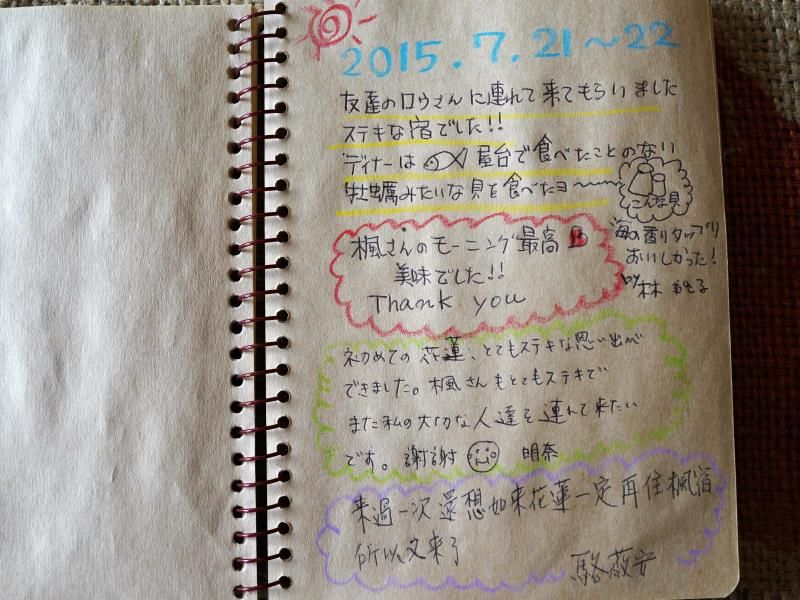 2015.7.21～22
友達のロウさんに連れて来てもらいました
ステキな宿でした!!
ディナーは 屋台で食べたことのない
牡蠣みたいな貝を食べたヨ～
こんな貝
海の香りタップリ
おいしかった!
by 林
楓さんのモーニング最高
美味でした!!
Thank you
初めての花蓮、とてもステキな思い出が
できました。楓さんもとてもステキで
また私の大切な人達を連れて来たい
です。謝謝 明奈
来過一次還想如来花蓮一定再住楓宿
所以又来了
駱薇安